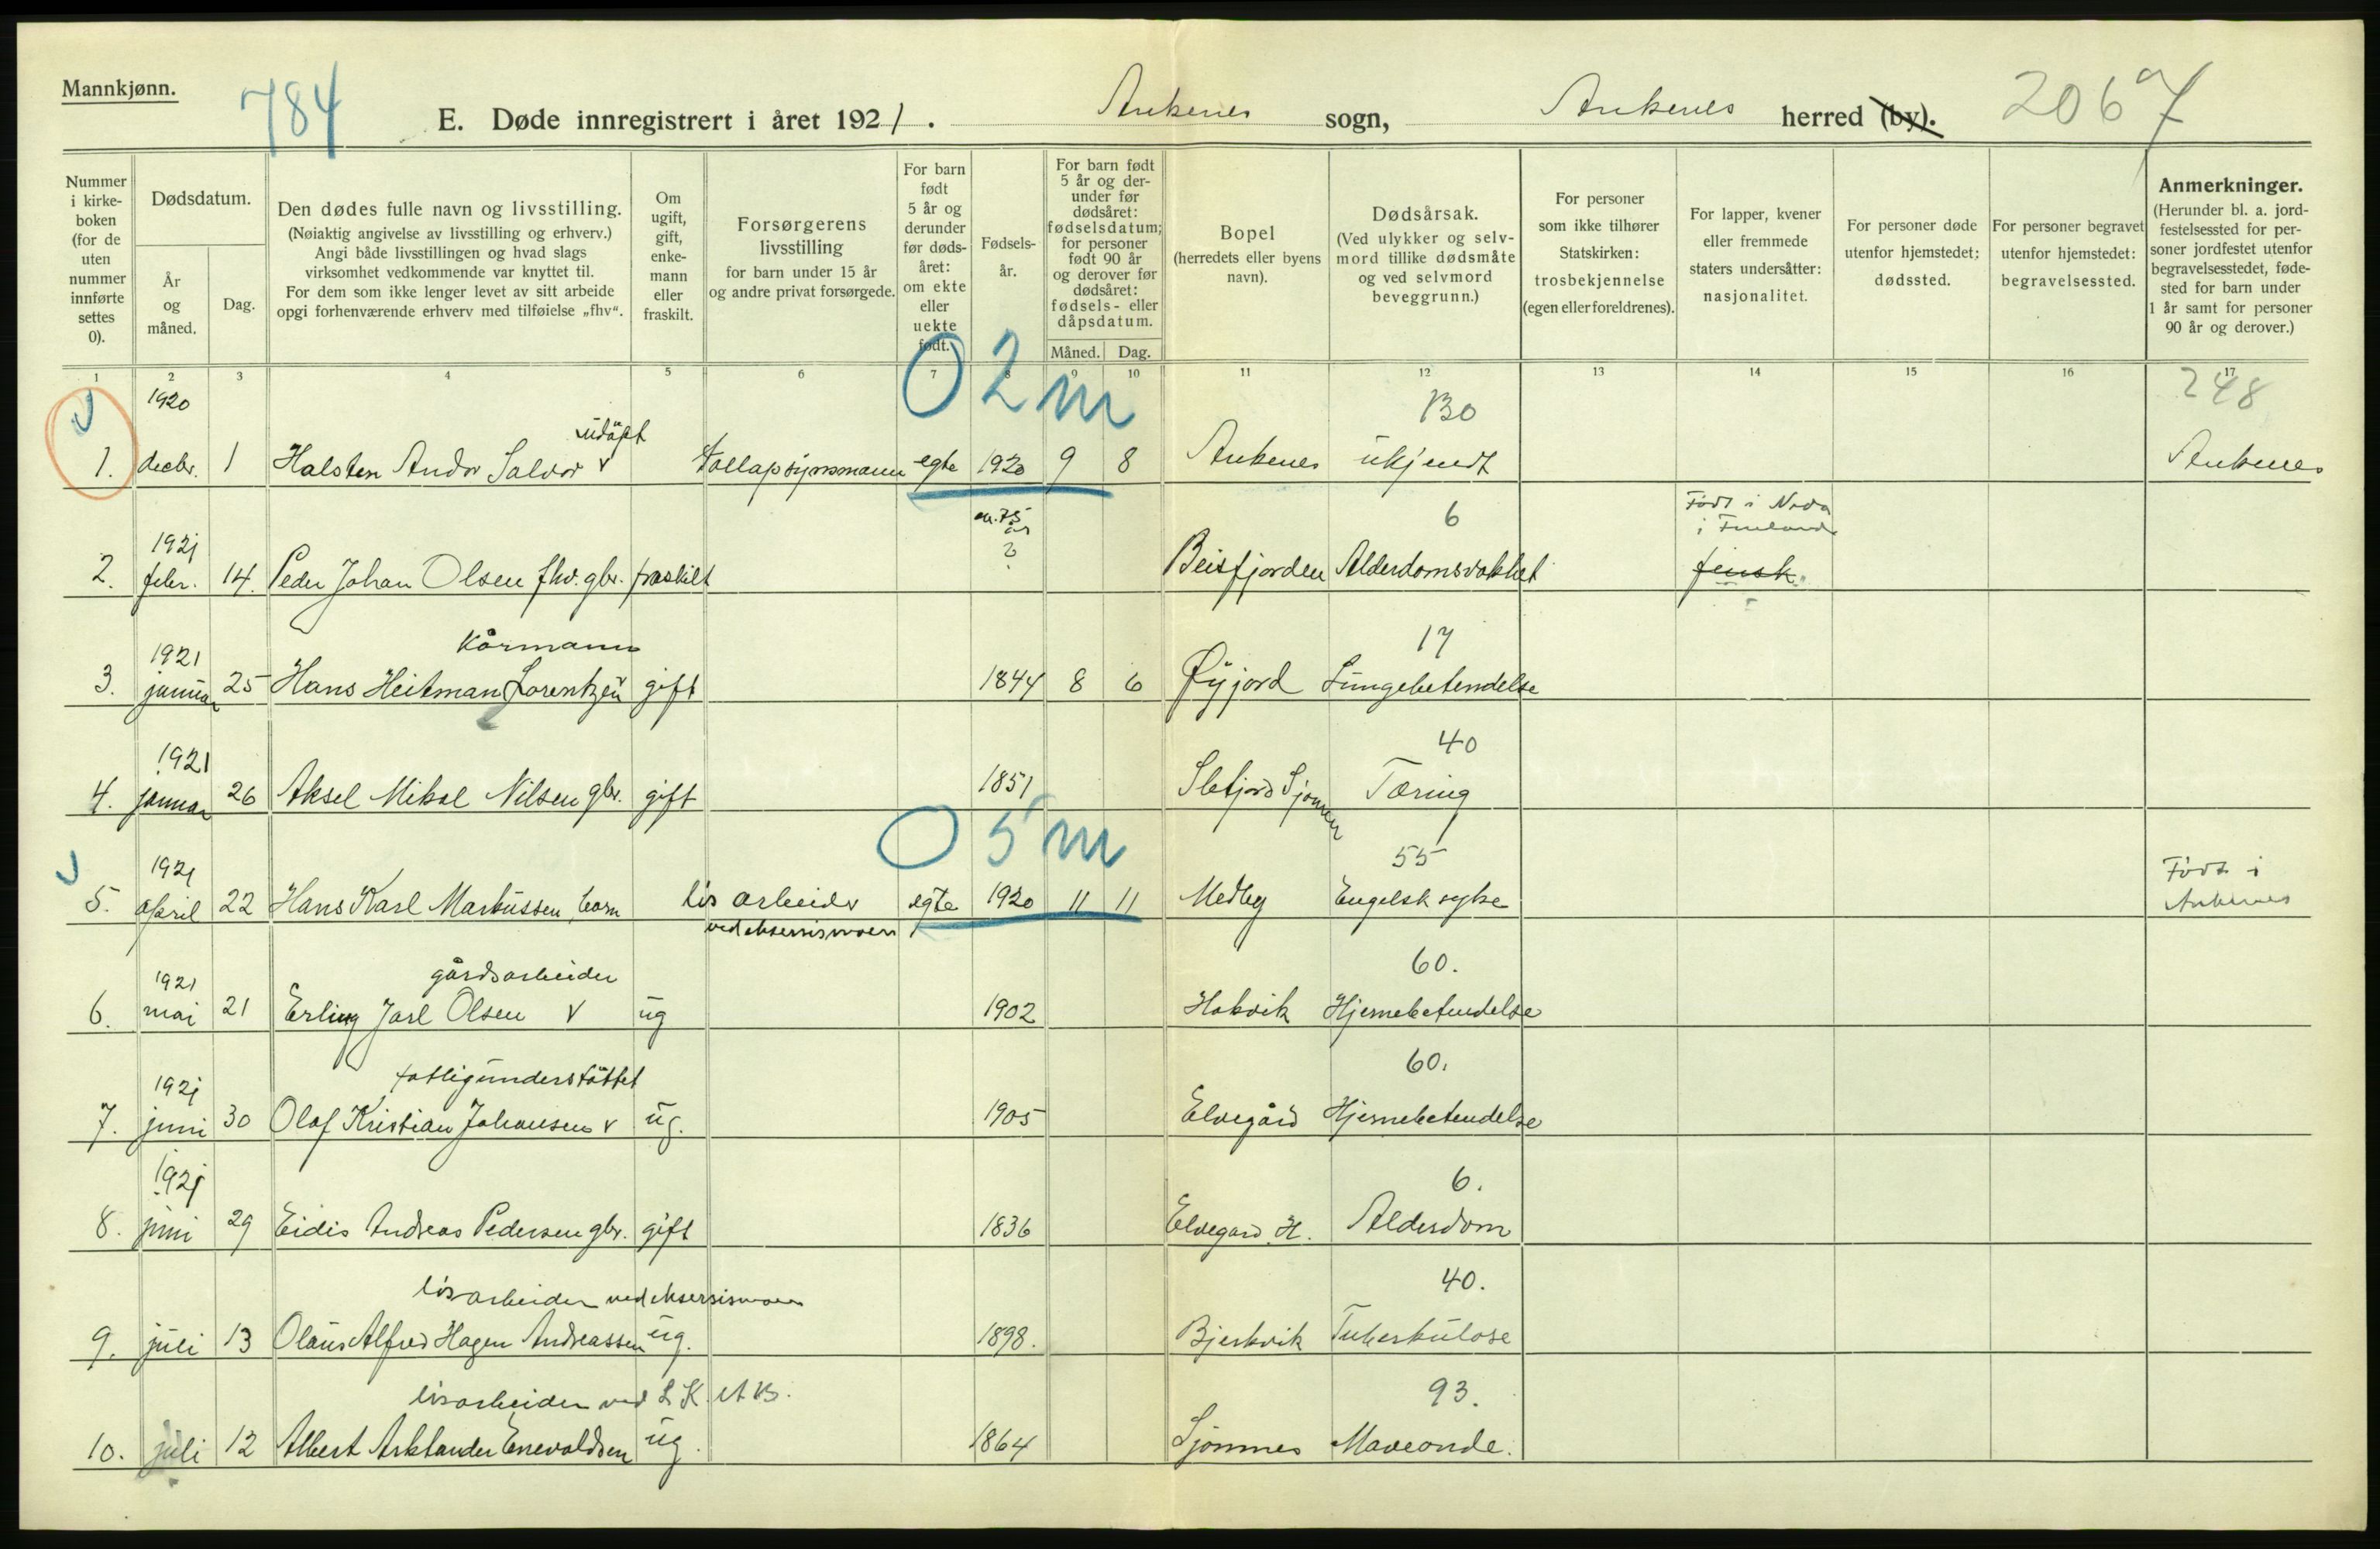 Mannkjønn.
784
E. Døde innregistrert i året 1921. Ankenes sogn, Ankenes herred (by). 2067
Nummer i kirkeboken (for de uten nummer innførte settes 0).
Dødsdatum.
År og måned.
Dag.
Den dødes fulle navn og livsstilling.
(Nøiaktig angivelse av livsstilling og erhverv.)
Angi både livsstillingen og hvad slags
virksomhet vedkommende var knyttet til.
For dem som ikke lenger levet av sitt arbeide
opgi forhenværende erhverv med tilføielse „fhv“.
Om ugift, gift, enkemann eller fraskilt.
Forsørgerens livsstilling
for barn under 15 år
og andre privat forsørgede.
For barn født 5 år og derunder før dødsåret: om ekte eller uekte født.
Fødselsår.
For barn født 5 år og derunder før dødsåret: fødselsdatum; for personer født 90 år og derover før dødsåret: fødsels- eller dåpsdatum.
Måned. Dag.
Bopel
(herredets eller byens navn).
Dødsårsak.
(Ved ulykker og selvmord tillike dødsmåte og ved selvmord beveggrunn.)
For personer som ikke tilhører Statskirken: trosbekjennelse (egen eller foreldrenes).
For lapper, kvener eller fremmede staters undersåtter: nasjonalitet.
For personer døde utenfor hjemstedet; dødssted.
For personer begravet utenfor hjemstedet: begravelsessted.
Anmerkninger.
(Herunder bl. a. jordfestelsessted for personer jordfestet utenfor begravelsesstedet, fødested for barn under 1 år samt for personer 90 år og derover.)
1 2 3 4 5 6 7 8 9 10 11 12 13 14 15 16 17
1920 02m 130 248
udøpt
1. decbr. 1 Halsten Andor Salvor v egte 1920 9 8 Ankenes ukjendt Ankenes
75 år 6 Født i
1921 ? i Finland
2. febr. 14. Peder Johan Olsen fhv. gbr. fraskilt Beisfjorden finsk
1921 Kårmann 17
3. januar 25 Hans Heitman Lorentzen gift 1844 8 6 Øyjord Lungebetendelse
1921 40
4. januar 26 Aksel Mikal Nilsen gbr. gift 1851 Tæring
05m
1921 55 Født i
5. april 22 Hans Karl Markussen, barn løsarbeider egte 1920 11 11 Medby Engelsk syke Ankenes
ved eksersismoen
1921 gårdsarbeider 60.
6. mai 21 Erling Jarl Olsen v ug 1902 Hakvik Hjernebetendelse
1921 fattigunderstøttet 60.
7. juni 30 Olaf Kristian Johansen v ug. 1905 Elvegård Hjernebetendelse
1921 6.
8. juni 29 Eidis Andreas Pedersen gbr. gift 1836 Elvegård H. Alderdom
løsarbeider ved eksersismoen 40.
9. juli 13 Olaus Alfred Hagen Andreassen ug. 1898. Bjerkvik Tuberkulose
løsarbeider ved L K A B. 93.
10. juli 12 Albert Enevoldsen ug. 1864 Sjømnes Maveonde.